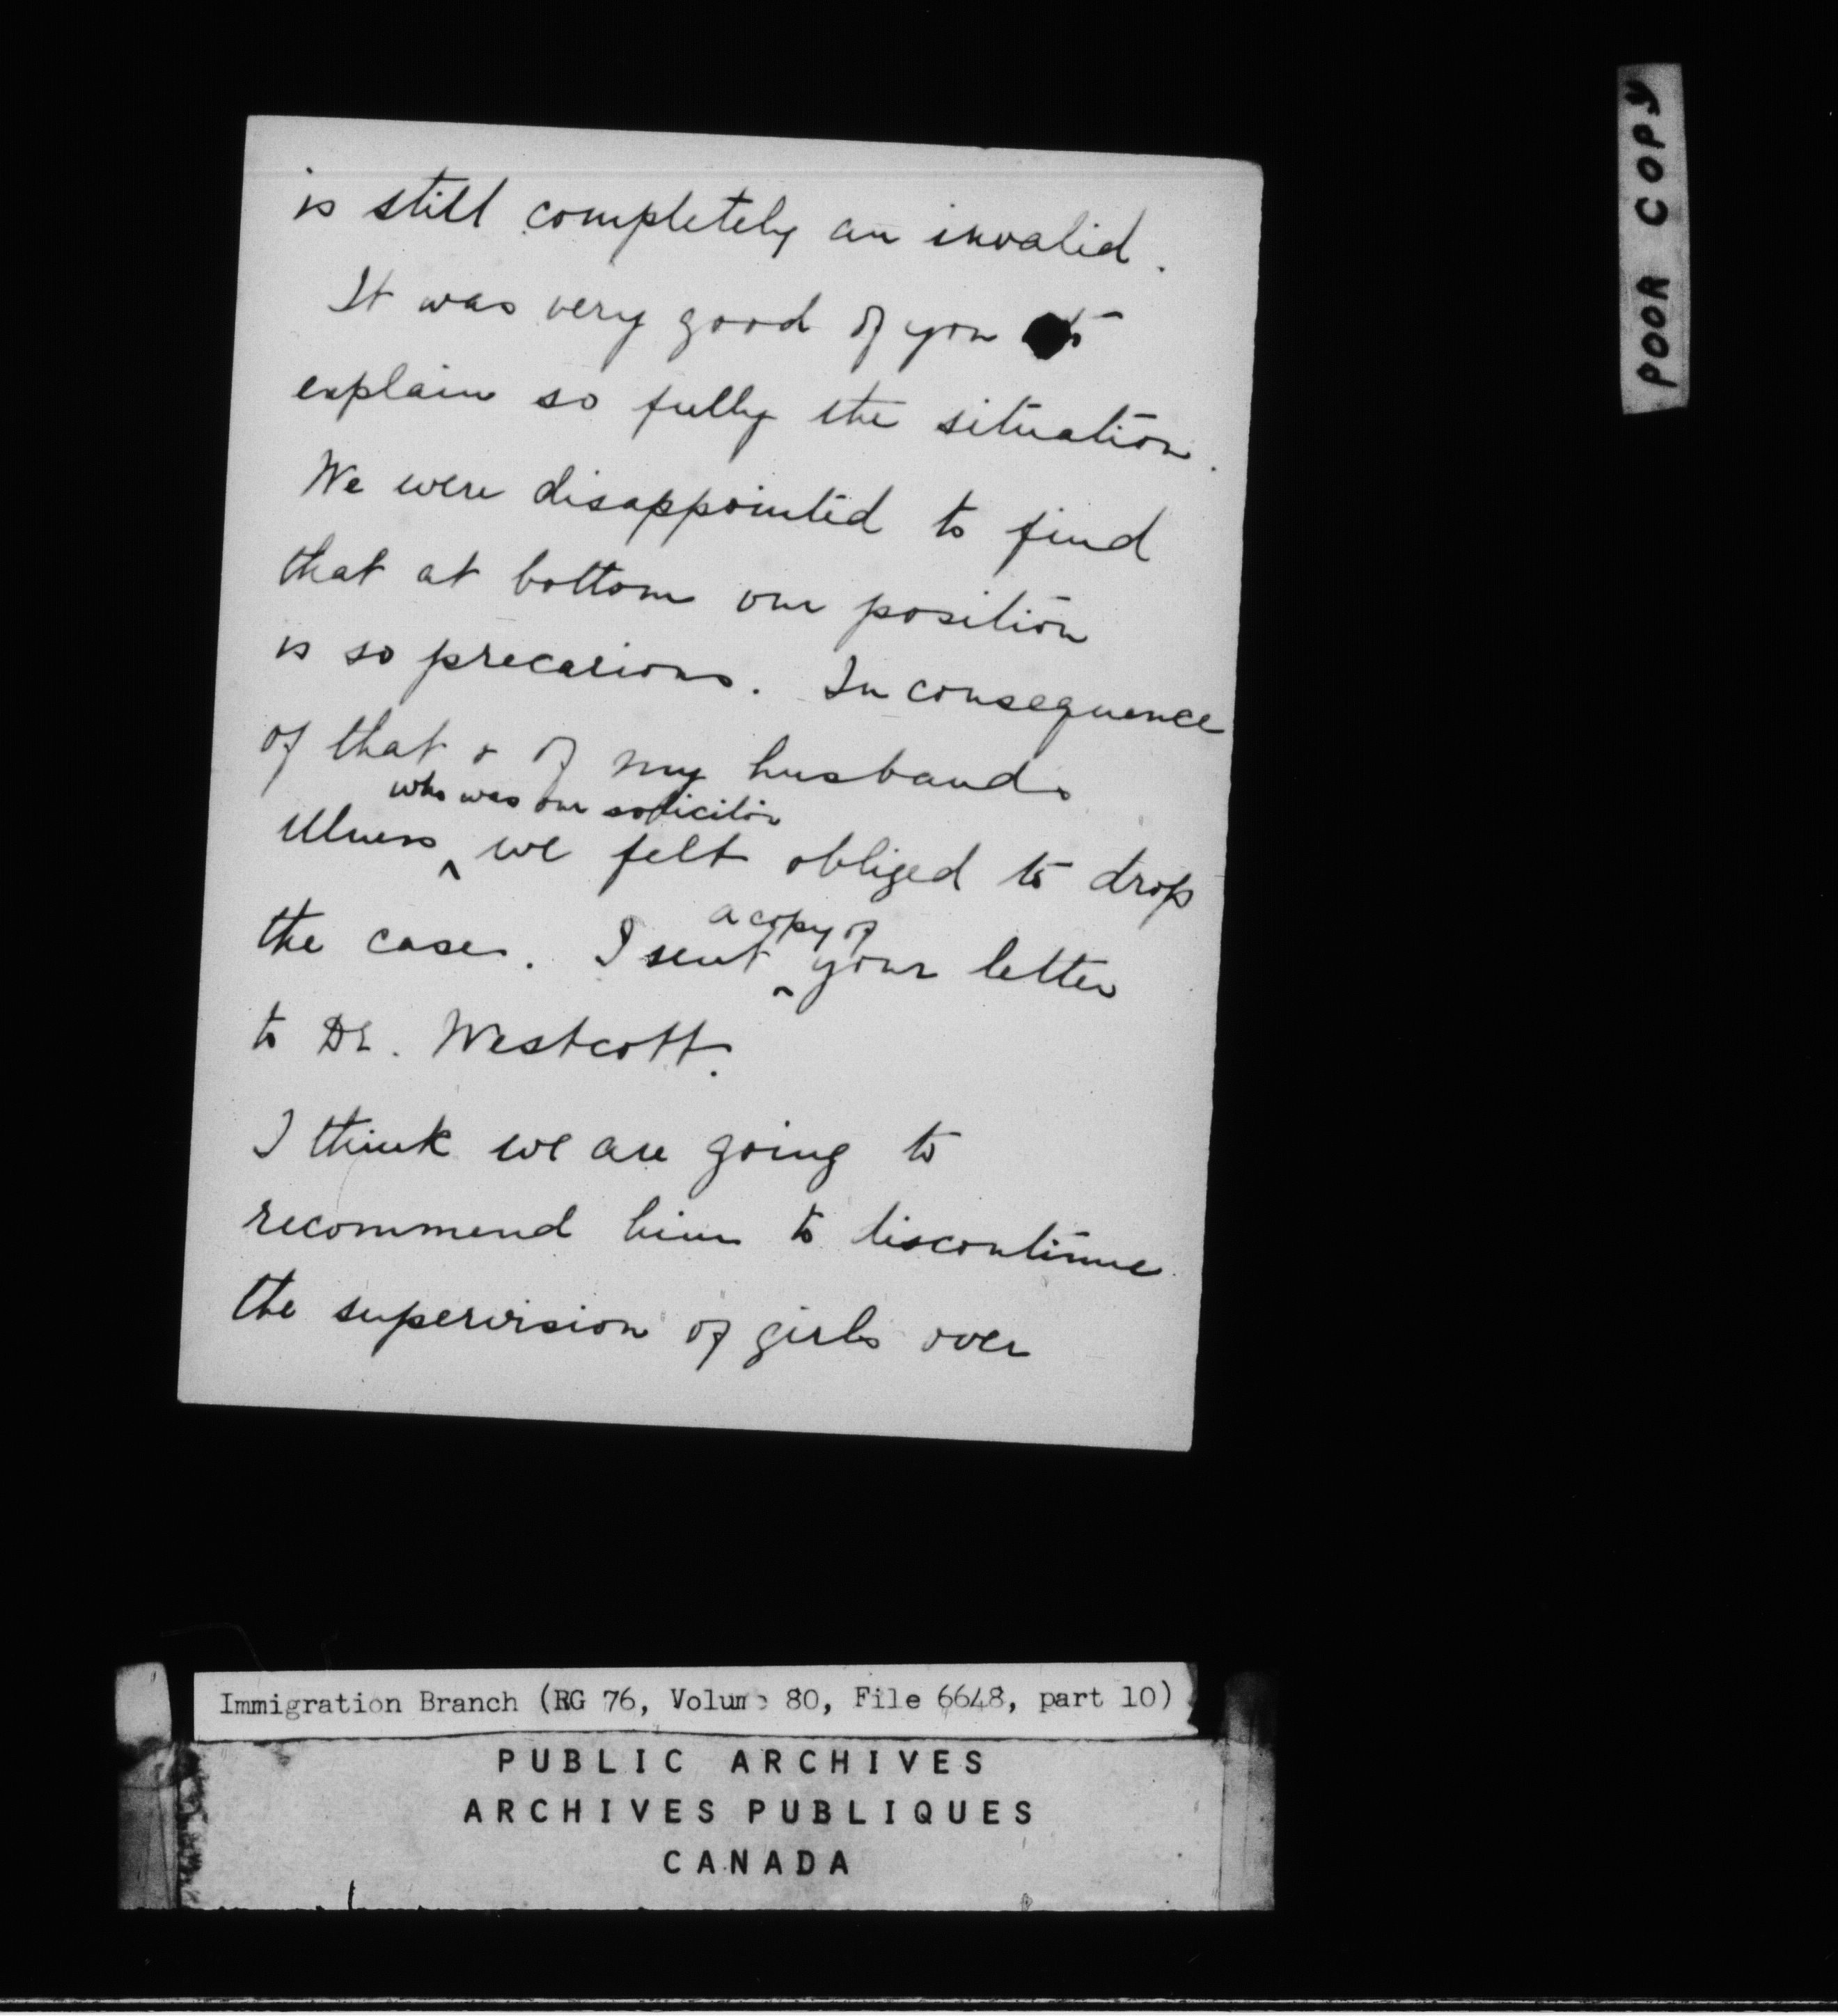 is still completely an invalid.
It was very good of you to
explain so fully the situation.
We were disappointed to find
that at bottom our position
is so precarious. In consequence
of that & of my husbands
who was our solicitor
illness ^ we felt obliged to drop
a copy of
the case. I sent ^ your letter
to Dr. Westcott.
I think we are going to
recommend him to discontinue
the supervision of girls over
POOR COPY
Immigration Branch (RG 76, Volume 80, File 6648, part 10)
PUBLIC ARCHIVES
ARCHIVES PUBLIQUES
CANADA